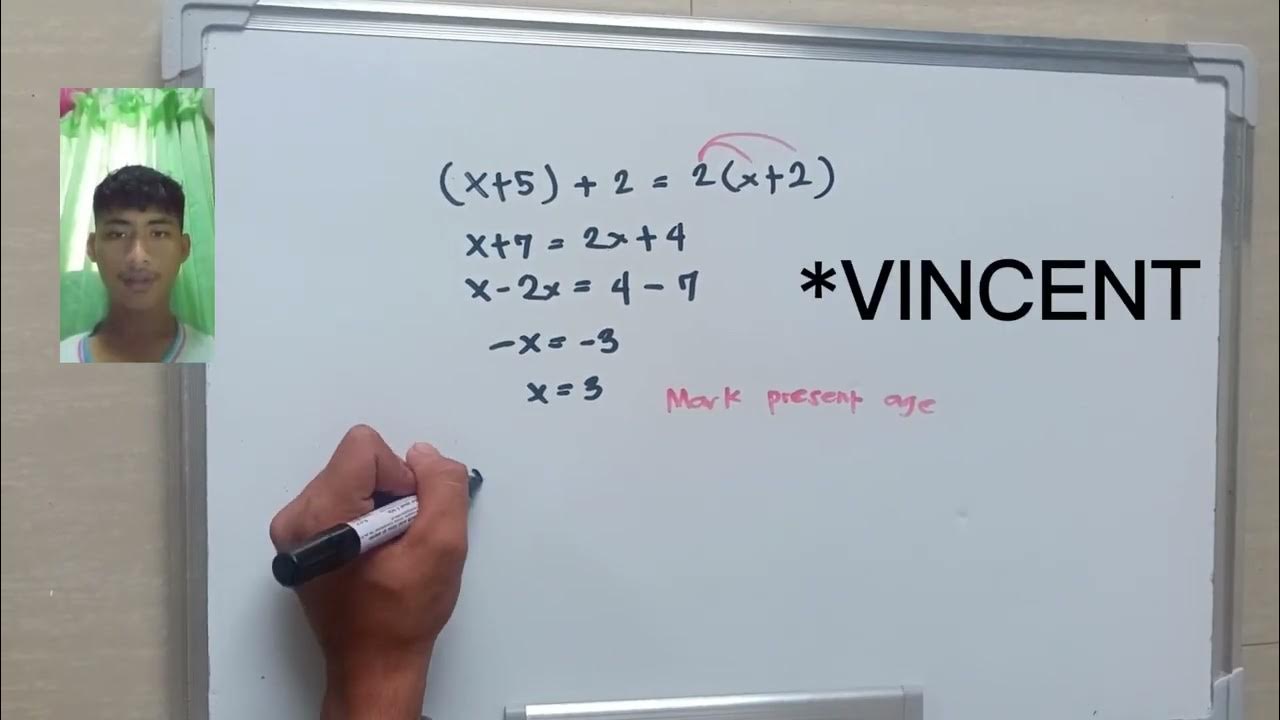 (x+5) + 2 = 2(x+2)
x+7 = 2x+4
x-2x = 4-7
*VINCENT
-x = -3
x = 3 Mark present age